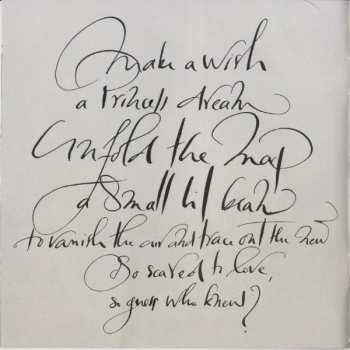 Make a wish
a Princess dream
Unfold the map
a small lil brain
to vanish the our and trace out the new
So scared to love,
so guess who knows?